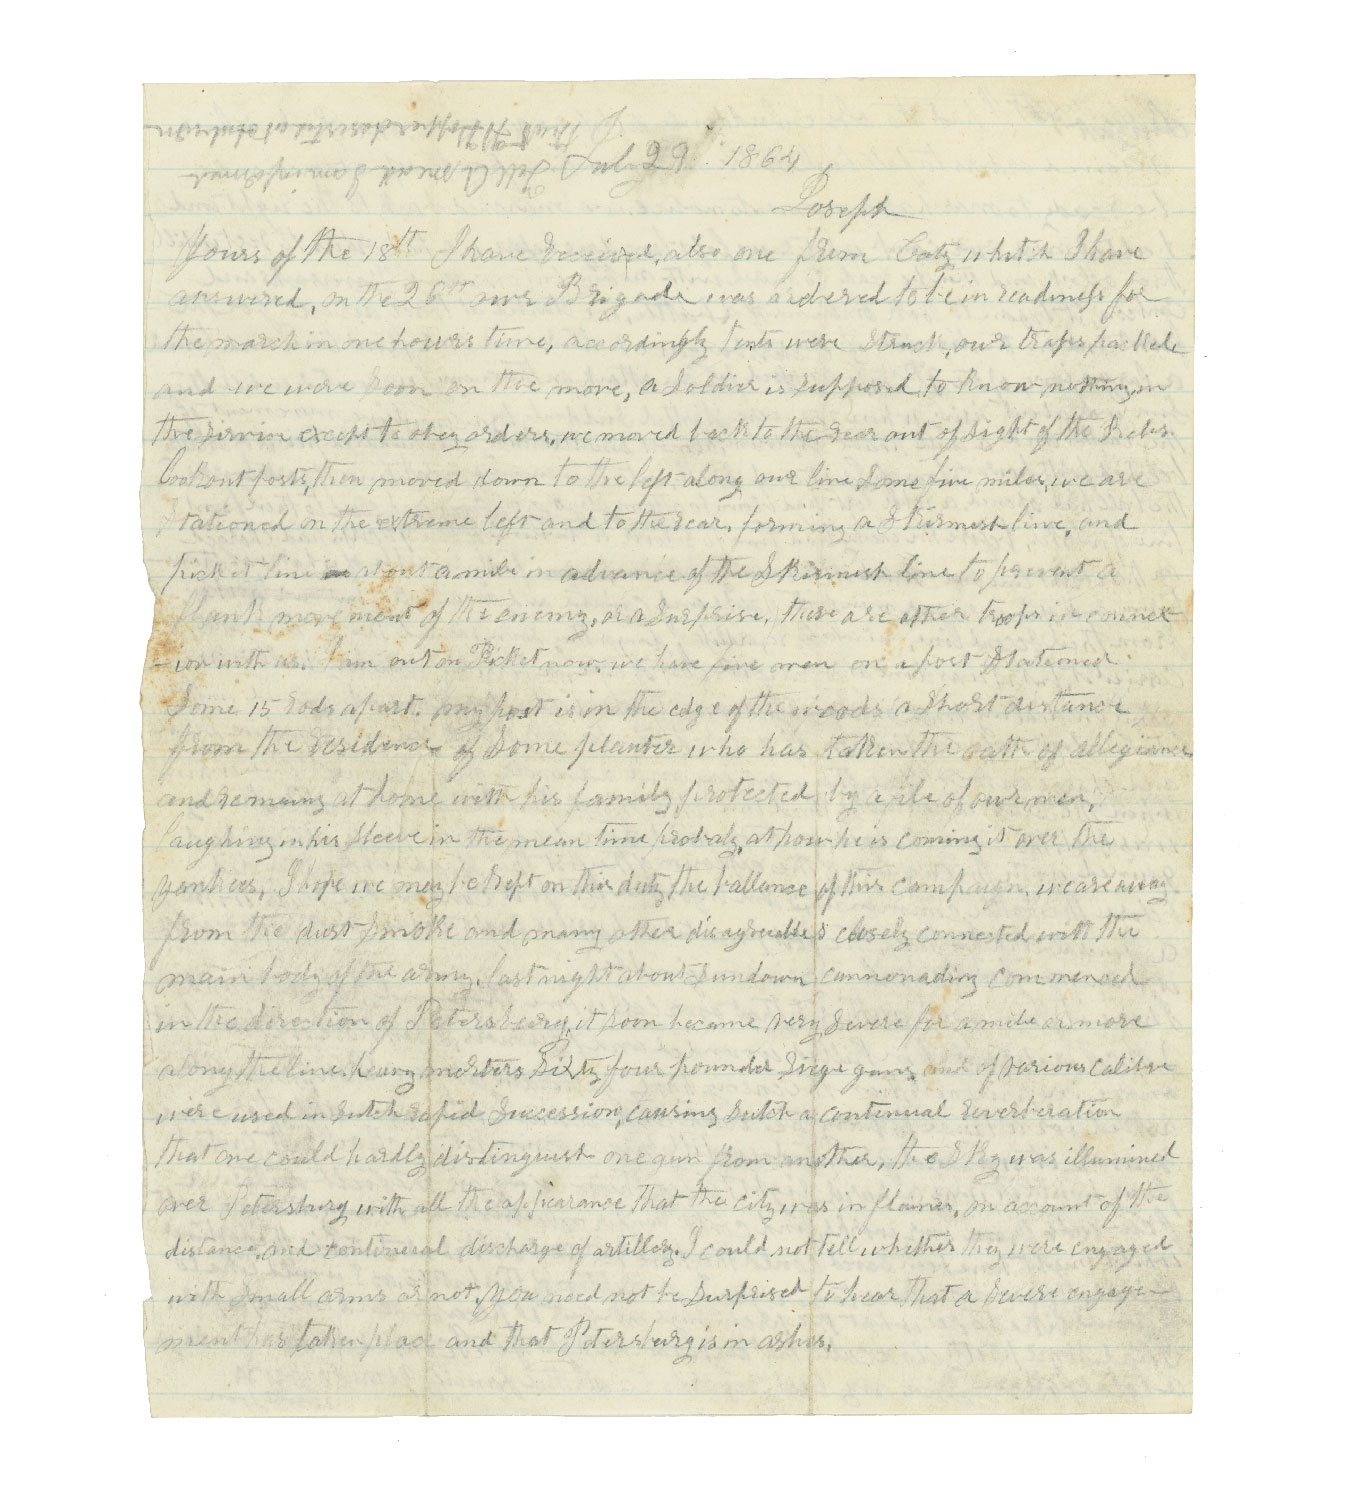 July 29. 1864
Joseph
Yours of the 18th I have received, also one from Caty which I have
answered, on the 26th our Brigade was ordered to be in readiness for
the march in one hours time, accordingly tents were struck, our traps packed
and we were soon on the move, a soldier is supposed to know nothing in
the servin except to obey orders, we moved back to the rear out of sight of the Rebs
Look out posts, then moved down to the left along our line some five miles, we are
stationed on the extreme left and to the rear, forming a skirmish line, and
picket line about a mile in advance of the skirmish line to prevent a
flank movement of the enemy, or a surprise, there are other troops in connex
-ion with us. I am out on Picket now, we have five men on a post stationed
some 15 rods apart. my post is in the edge of the woods a short distance
from the residence of some planter who has taken the oath of allegiance
and remains at home with his family protected by a file of our men,
laughing in his sleeve in the mean time probaly, at how he is coming it over the
yankees, I hope we may be kept on this duty the ballance of this campaign, we are away
from the dust smoke and many other disagreeables closely connected with the
main body of the army, last night about sundown cannonading commenced
in the direction of Petersburg, it soon became very severe for a mile or more
along the line. heavy morters Sixty four pounder siege guns and of various calibre
were used in sutch rapid succession, causing sutch a continual reverberation
that one could hardly distinguish one gun from another, the sky was illumined
over Petersburg with all the appearance that the city was in flames, on account of the
distance, and continual discharge of artillery. I could not tell whether they were engaged
with small arms or not. you need not be surprised to hear that a severe engage-
ment has taken place and that Petersburg is in ashes.
Tell A Mead I am informed
that H Hopper deserted at